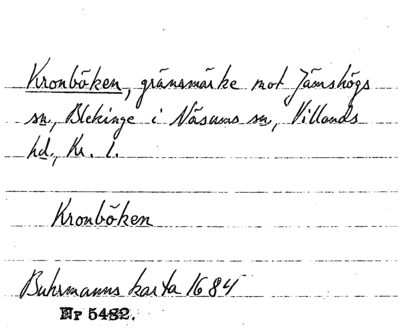 Kronböken, gränsmärke mot Jämshögs
sn, Blekinge i Näsums sn, Villands
hd, Kr. l.
Kronböken
Buhrmanns karta 1684
Nr 5482.